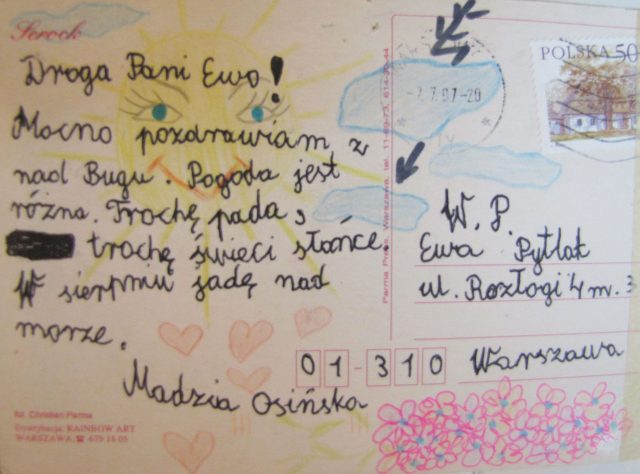 Serock
Droga Pani Ewo!
Mocno pozdrawiam z
nad Bugu. Pogoda jest
różna. Trochę pada,
trochę świeci słońce.
W sierpniu jadę nad
morze.
Madzia Osińska
fot. Christian Parma
Dystrybucja: RAINBOW ART
WARSZAWA, ☎ 679 18 05
Parma Press, Warszawa, tel.
-7.7.97-20
POLSKA 50
W. P
Ewa Pytlak
ul. Rozłogi 4 m. 3
01-310 Warszawa